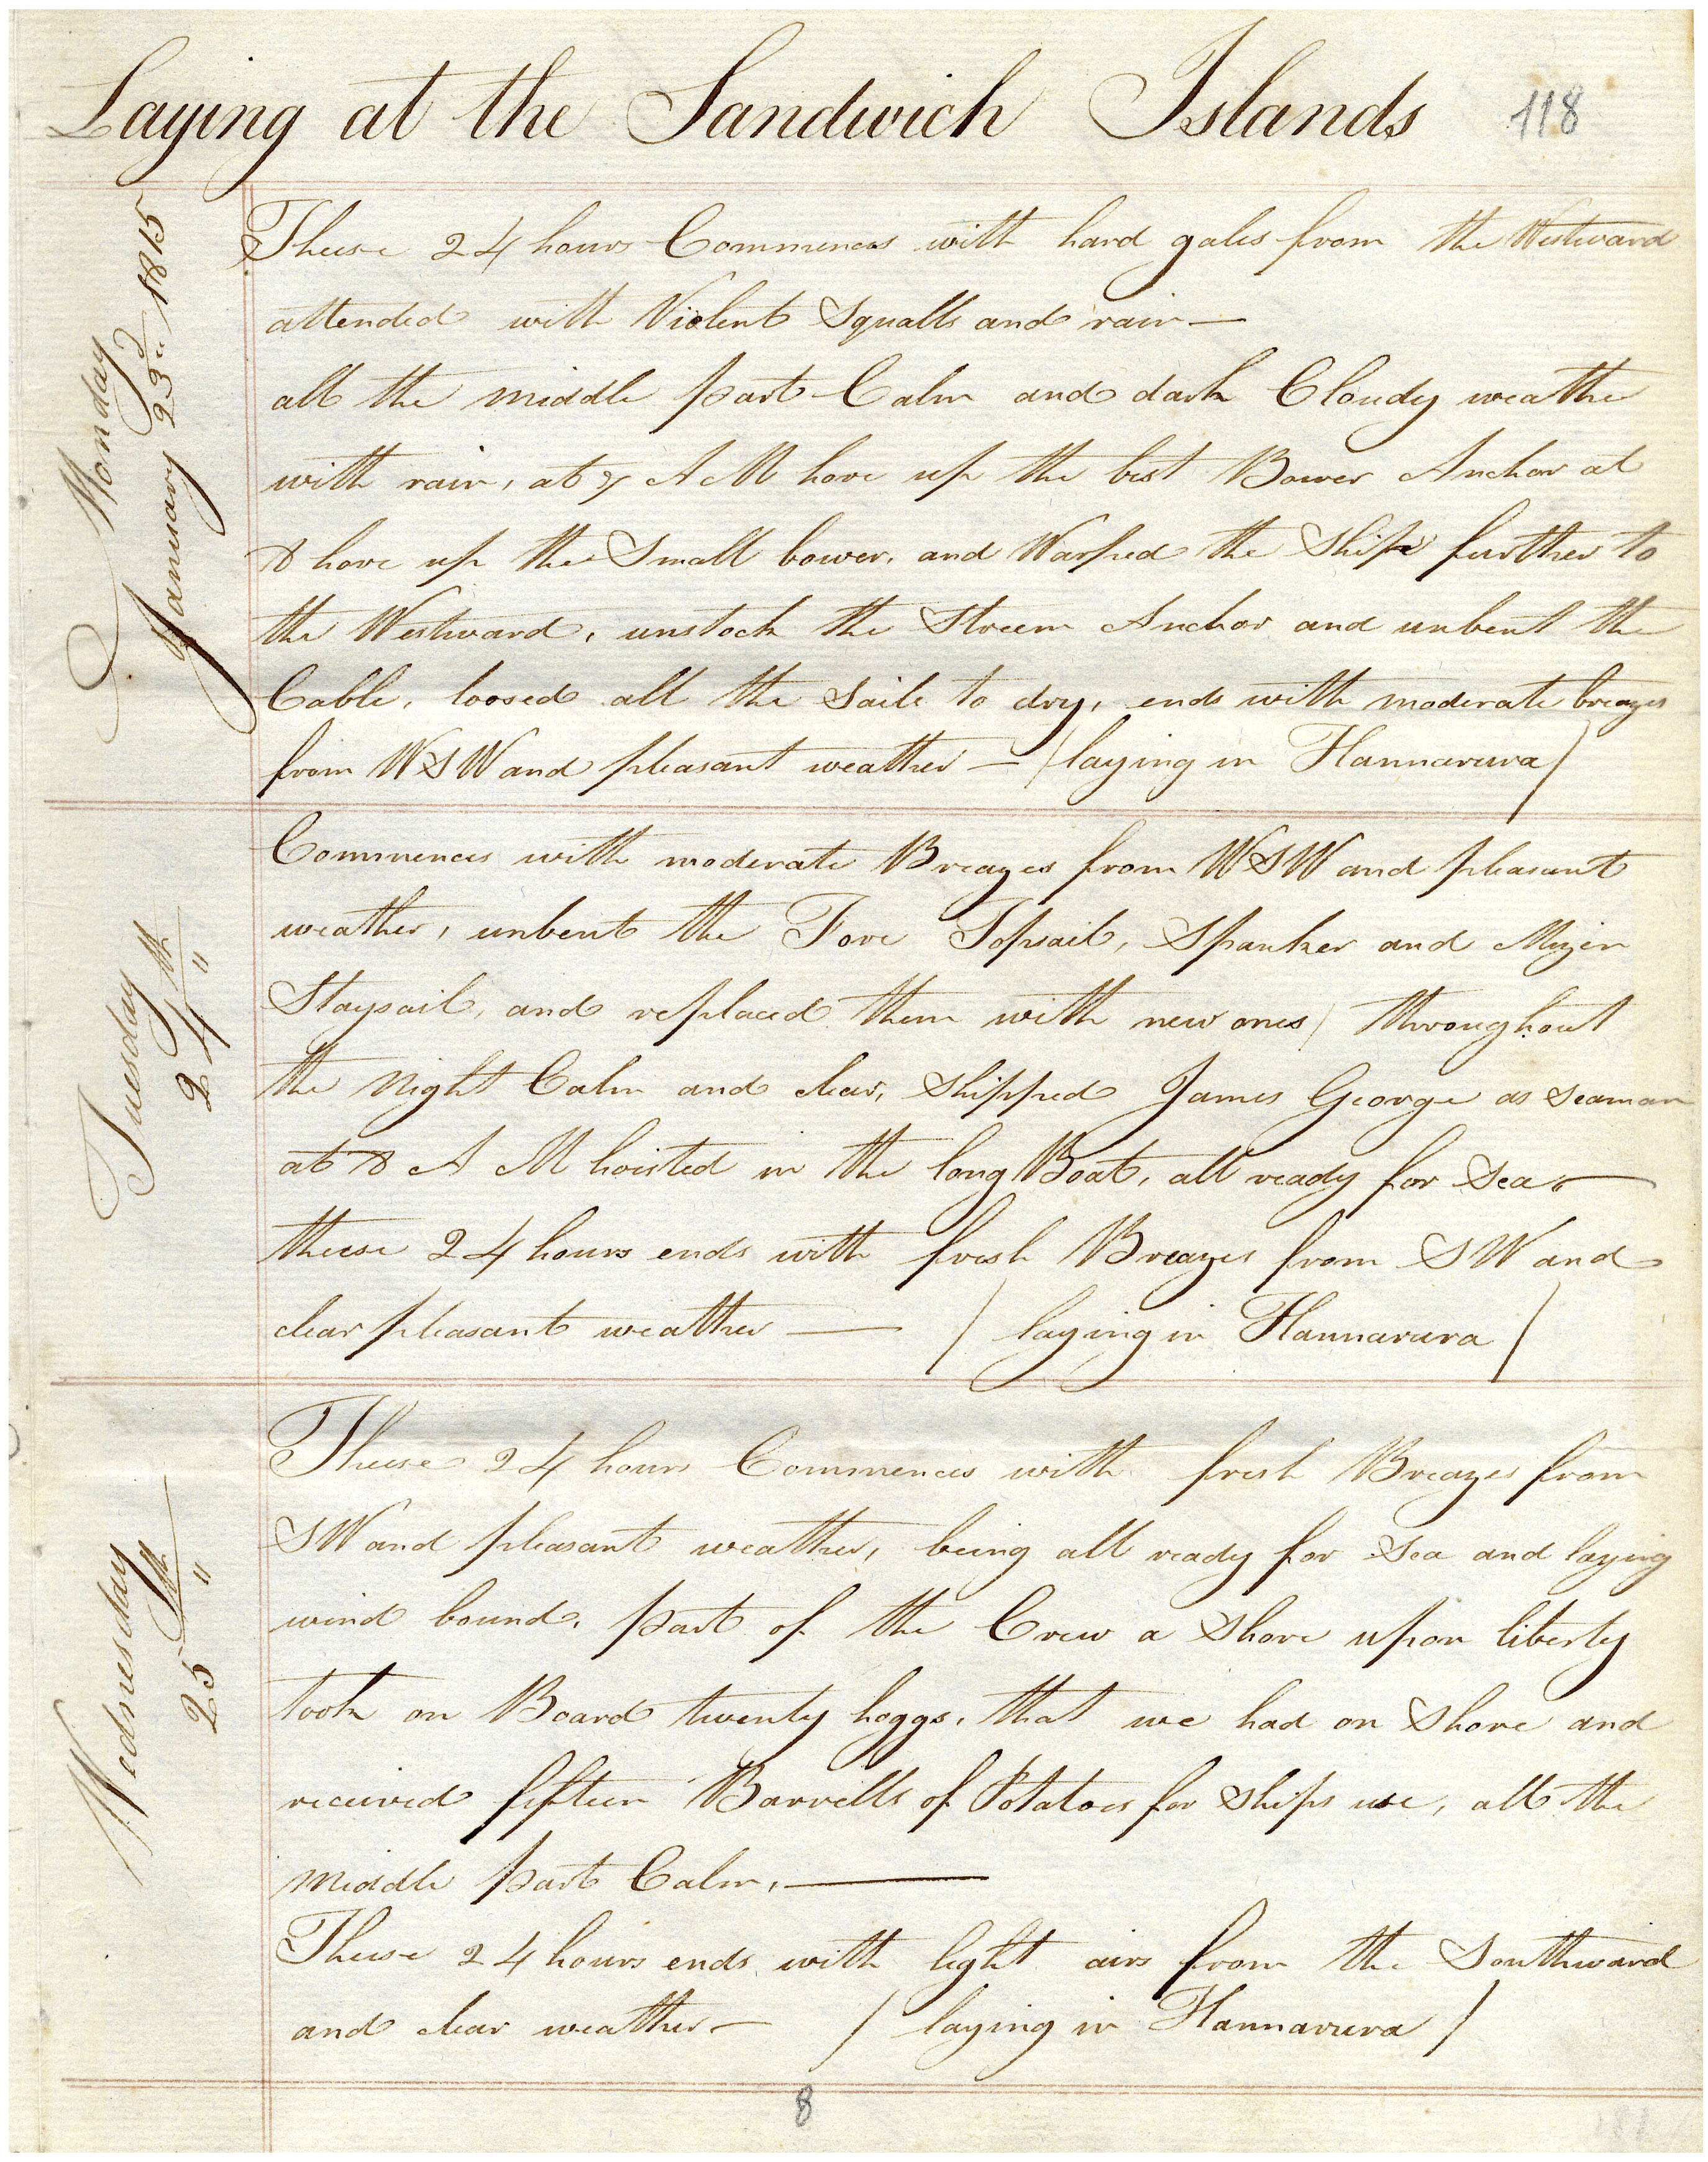 Laying at the Sandwich Islands 118
Monday
January 23d 1815
Theese 24 hours Commences with hard gales from the Westward
attended with Violent Squalls and rain —
all the middle part Calm and dark Cloudy weather
with rain, at 7 A M hove up the best Bower Anchor at
8 hove up the Small bower, and Warped the Ship further to
the Westward, unstock the Streem Anchor and unbent the
Cable, loosed all the Sails to dry, ends with moderate breazes
from WSW and pleasant weather — / laying in Hannarura /
Tuesday
24th
Commences with moderate Breazes from WSW and pleasant
weather, unbent the Fore Topsail, Spanker and Mizen
Staysail, and replaced them with new ones / throughout
the night Calm and clear, Shipped James George as Seaman
at 8 A M hoisted in the long Boat, all ready for Sea —
theese 24 hours ends with fresh Breazes from SW and
clear pleasant weather — / laying in Hannarura /
Wednesday
25th
Theese 24 hours Commences with fresh Breazes from
SW and pleasant weather, being all ready for Sea and laying
wind bound, part of the Crew a Shore upon liberty
took on Board twenty hoggs, that we had on Shore and
received fifteen Barrells of Potatoes for Ships use, all the
middle part Calm, —
Theese 24 hours ends with light airs from the Southward
and clear weather — / laying in Hannarura /
8